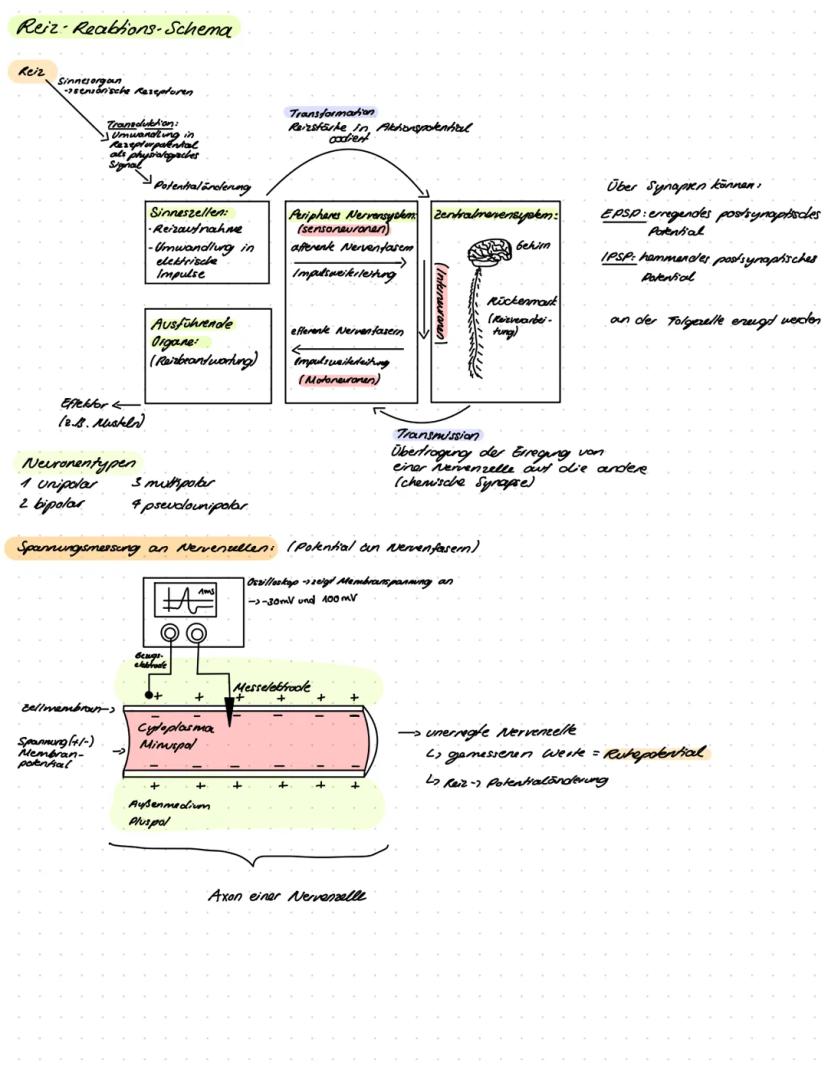 Reiz-Reaktions-Schema
Reiz
Sinnesorgan
→ sensorische Rezeptoren
Transduktion:
Umwandlung in
Rezeptorpotential
als physiologisches
Signal
Potentialänderung
Transformation
Reizstärke in Aktionspotential
codiert
Sinneszellen:
· Reizaufnahme
- Umwandlung in
elektrische
Impulse
Peripheres Nervensystem:
(sensoneuronen)
afferente Nervenfasern
Impulsweiterleitung
efferente Nervenfasern
Impulsweiterleitung
(Motoneuronen)
Zentralnervensystem:
Gehirn
(Interneuronen)
Rückenmark
(Reizverarbei-
tung)
Über Synapsen können:
EPSP: erregendes postsynaptisches
Potential
IPSP: hemmendes postsynaptisches
Potential
an der Folgezelle erzeugt werden
Ausführende
Organe:
(Reizbeantwortung)
Effektor ←
(z.B. Muskeln)
Transmission
Übertragung der Erregung von
einer Nervenzelle auf die andere
(chemische Synapse)
Neuronentypen
1 unipolar 3 multipolar
2 bipolar 4 pseudounipolar
Spannungsmessung an Nervenzellen: (Potential an Nervenfasern)
1ms
Oszilloskop → zeigt Membranspannung an
→ -30mV und 100mV
Bezugs-
elektrode
Messelektrode
+ + + + + +
Zellmembran →
− − − − − −
Cytoplasma
Minuspol
Spannung (+/-)
Membran-
potential
− − − − − −
+ + + + + +
Außenmedium
Pluspol
→ unerregte Nervenzelle
↳ gemessenen Werte = Ruhepotential
↳ Reiz → Potentialänderung
Axon einer Nervenzelle